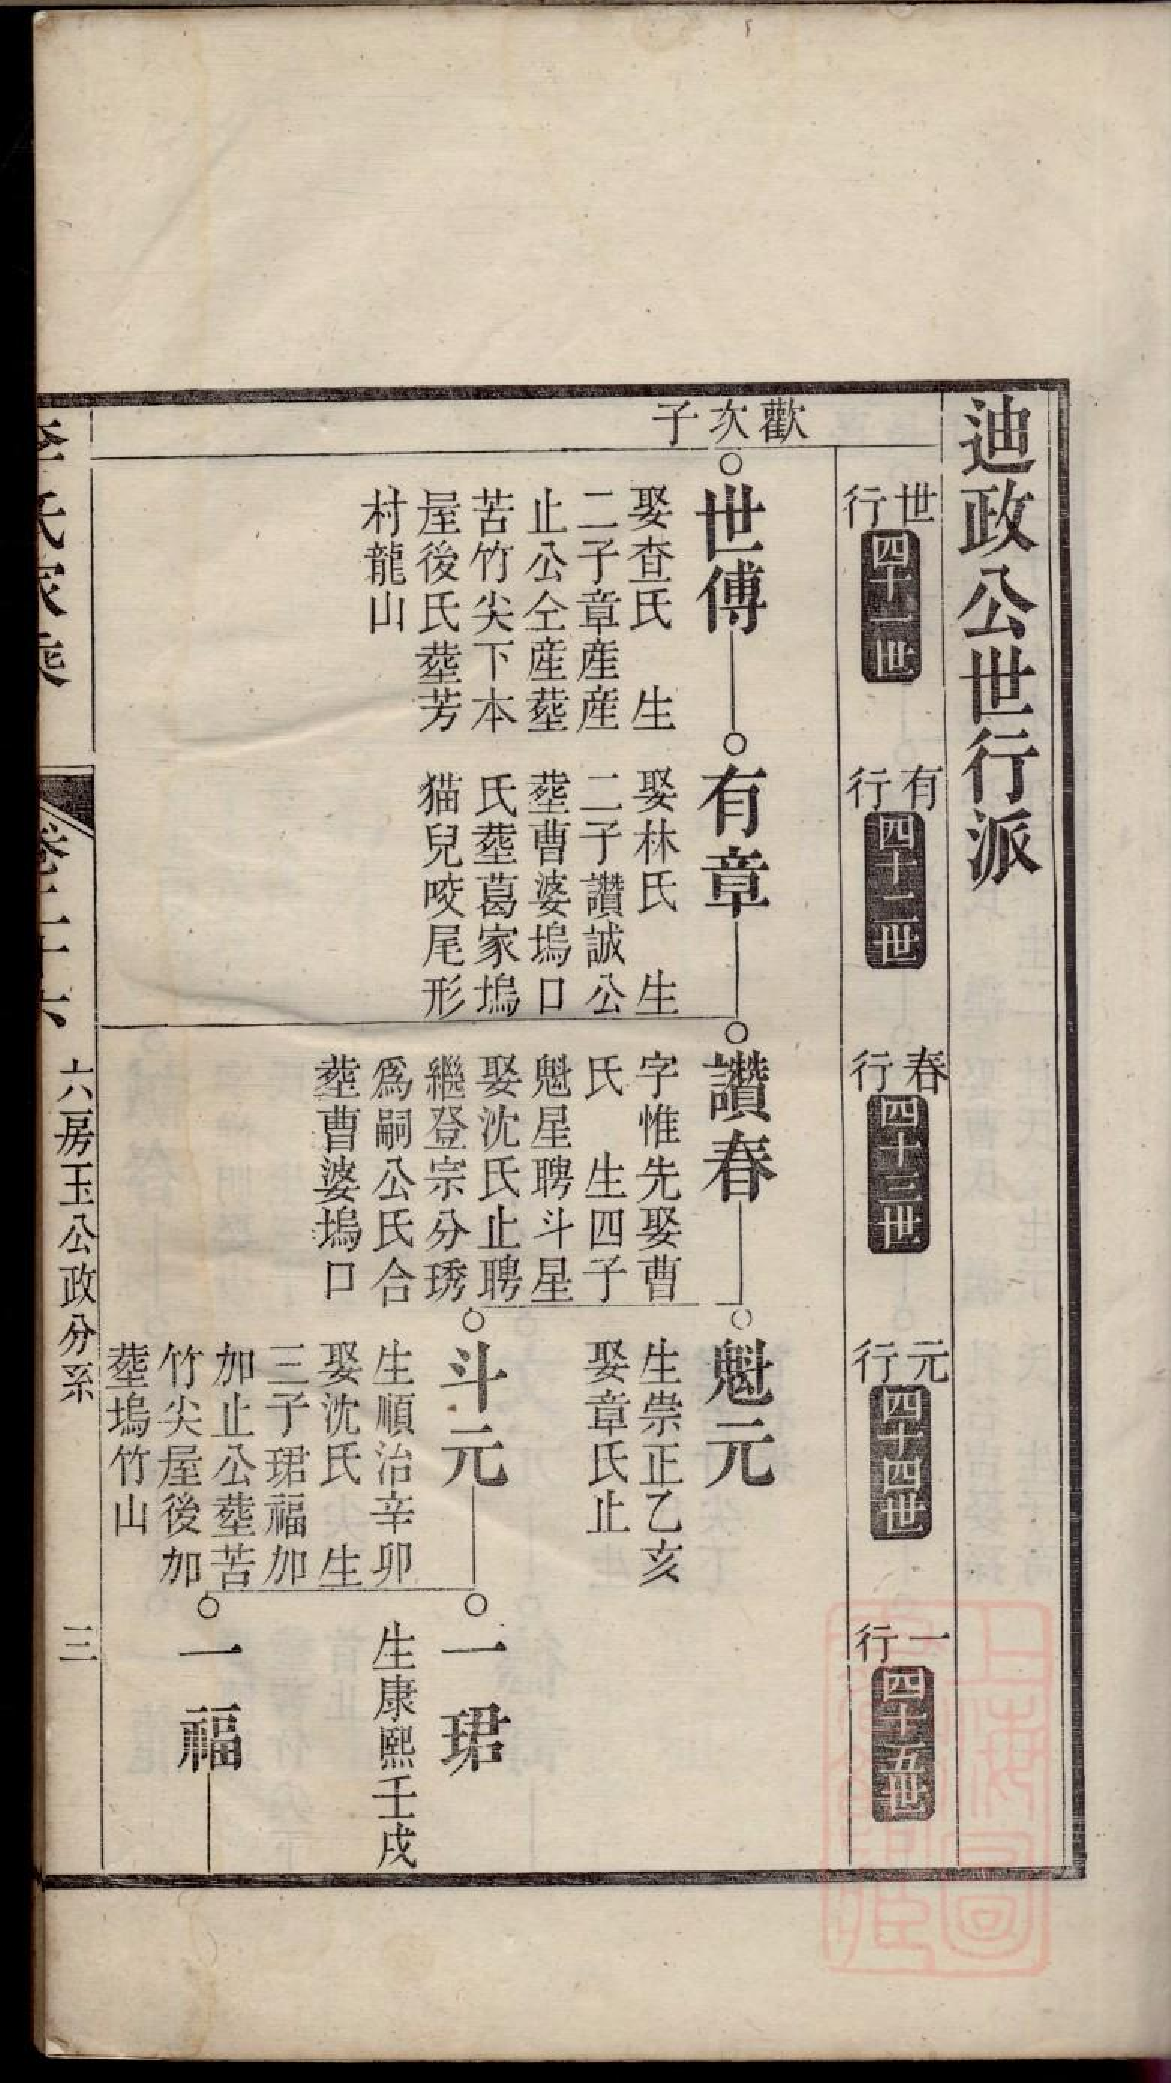 迪政公世行派
世行
四十一世
有行
四十二世
春行
四十三世
元行
四十四世
一行
四十五世
歡次子
世傅
娶查氏　生
二子章産産
止公仝産塟
苦竹尖下本
屋後氏塟芳
村龍山
有章
娶林氏　生
二子讚誠公
塟曹婆塢口
氏塟葛家塢
猫兒咬尾形
讚春
字惟先娶曹
氏　生四子
魁星聘斗星
娶沈氏止聘
繼登宗分琇
爲嗣公氏合
塟曹婆塢口
魁元
生崇正乙亥
娶章氏止
斗元
生順治辛卯
娶沈氏　生
三子珺福加
加止公塟苦
竹尖屋後加
塟塢竹山
一珺
生康熙壬戌
一福
氏家乘
卷二十六
六房玉公政分系
三